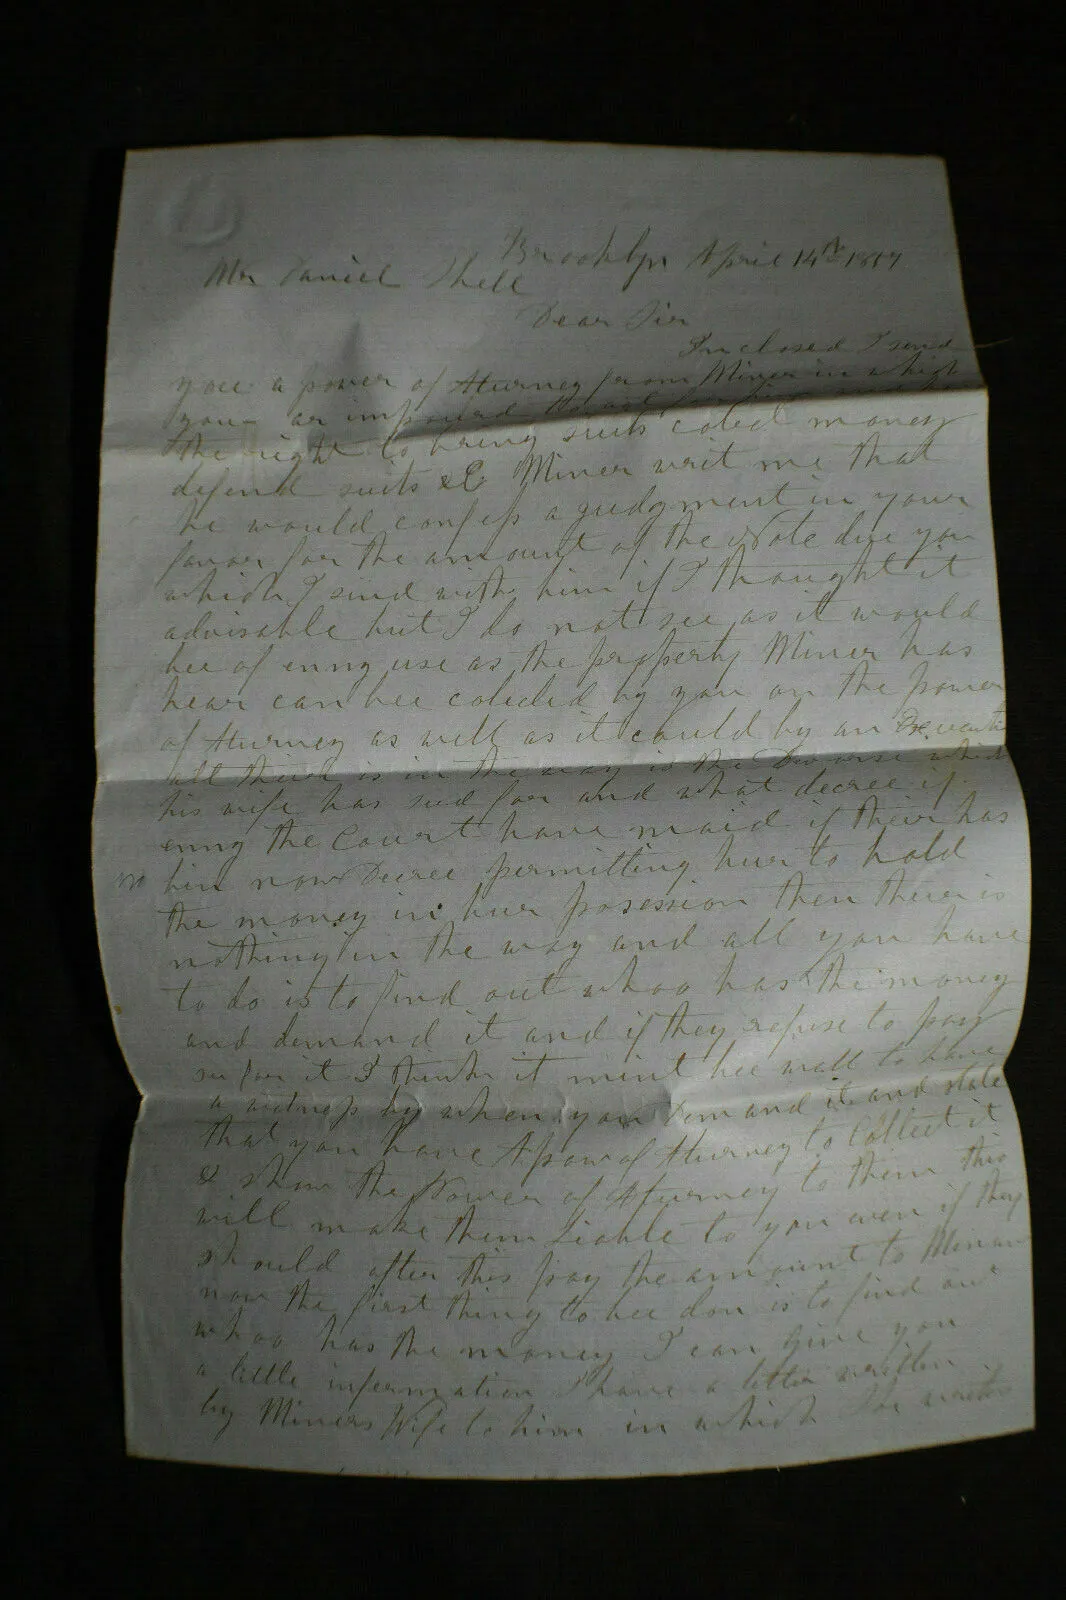 Brooklyn April 14th
Mr Daniel Shell
Dear Sir
Inclosed I send
you a power of Aturney from Miner in which
you ar
the right to bring suits coled money
defend suits &c Miner writ me that
he would confess a gudgment in your
favor for the amount of the Note due you
which I send with him if I thought it
advisable but I do not see as it would
bee of enny use as the property Miner has
hear can bee coleded by you on the power
of Aturney as well as it could by an Execution
all their is in the way is the Divorse which
his wife has sued for and what decree if
enny the Court have maid if their has
no bin now Decree permitting hur to hold
the money in hur posession then their is
nothing in the way and all you have
to do is to find out whoo has the money
and demand it and if they refuse to pay
sue for it I think it mint bee well to have
a witness by when you Demand it and state
that you have A power of Aturney to Collect it
& show the Power of Aturney to them this
will make them Liable to you even if they
should after this pay the amount to Miner
now the first thing to bee don is to find out
whoo has the money I can give you
a little information I have a letter written
by Miners Wife to him in which She writes